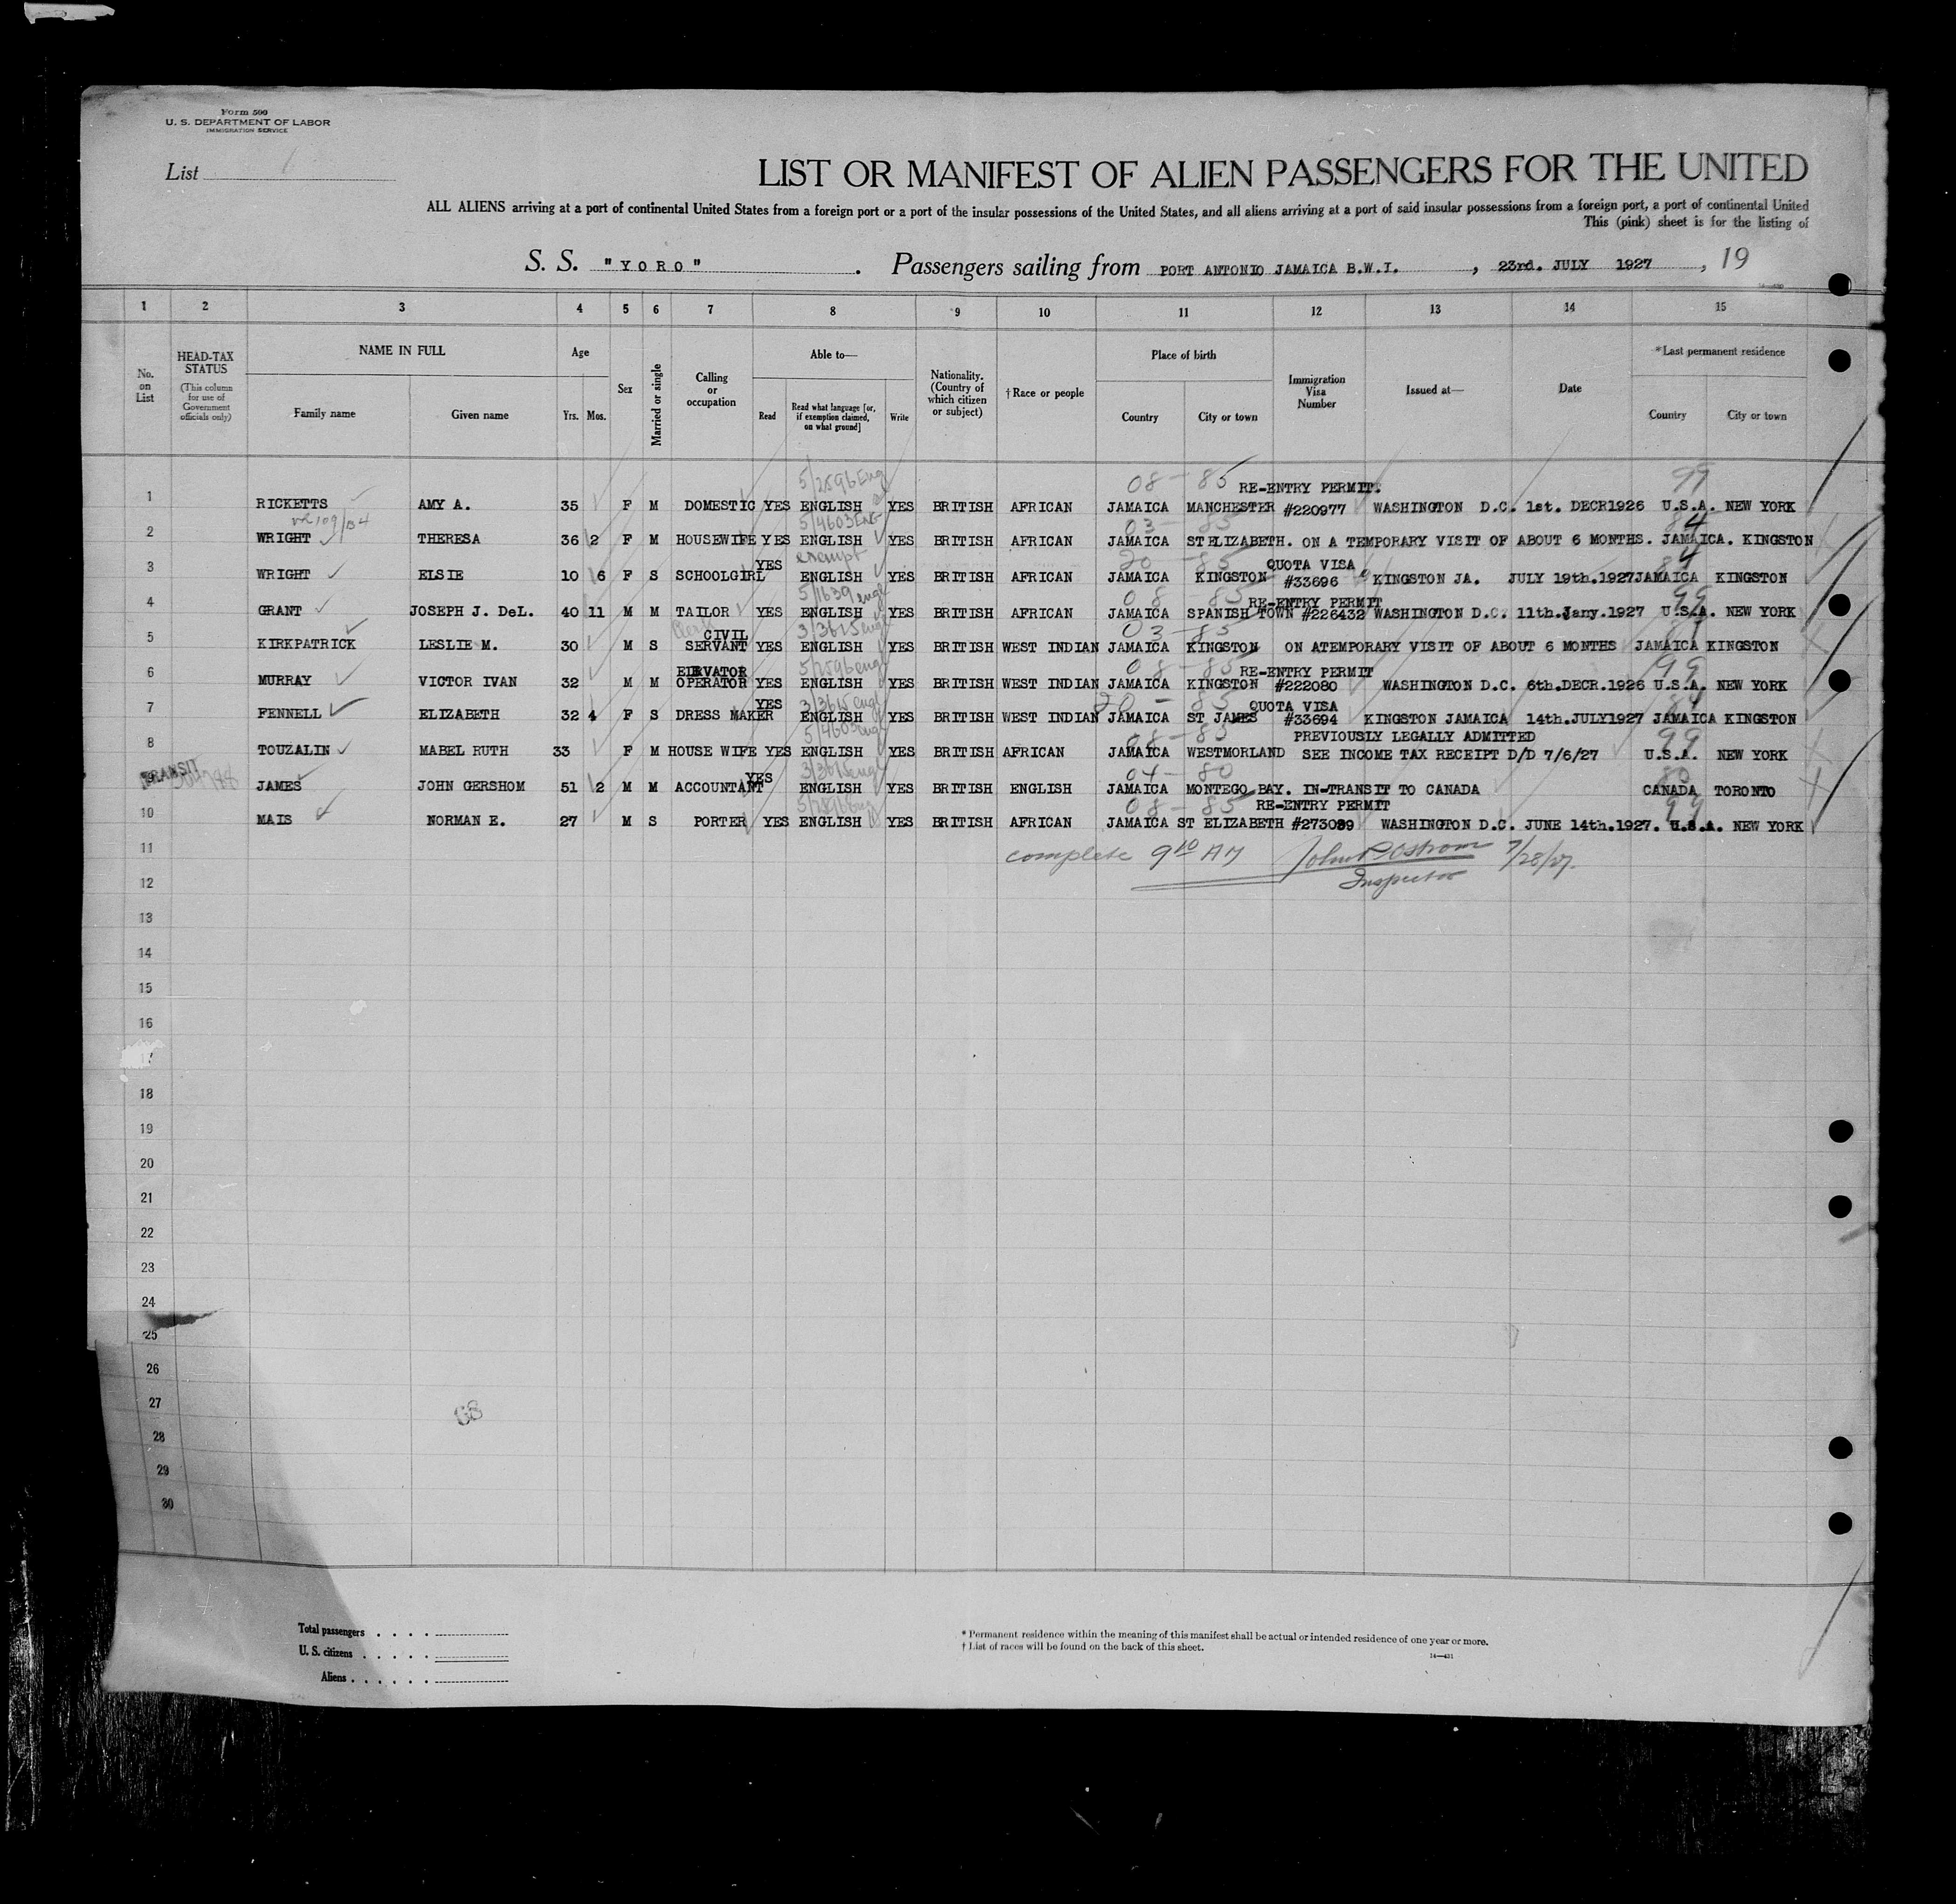 Form 500
U. S. DEPARTMENT OF LABOR
IMMIGRATION SERVICE
List 1
LIST OR MANIFEST OF ALIEN PASSENGERS FOR THE UNITED
ALL ALIENS arriving at a port of continental United States from a foreign port or a port of the insular possessions of the United States, and all aliens arriving at a port of said insular possessions from a foreign port, a port of continental United
This (pink) sheet is for the listing of
S. S. "YORO". Passengers sailing from PORT ANTONIO JAMAICA B.W.I., 23rd. JULY 1927, 19
1 2 3 4 5 6 7 8 9 10 11 12 13 14 15
No. on List
HEAD-TAX STATUS (This column for use of Government officials only)
NAME IN FULL
Family name Given name
Age
Yrs. Mos.
Sex
Married or single
Calling or occupation
Able to—
Read Read what language [or, if exemption claimed, on what ground] Write
Nationality. (Country of which citizen or subject)
† Race or people
Place of birth
Country City or town
Immigration Visa Number
Issued at—
Date
*Last permanent residence
Country City or town
5/2596 Eng 08 - 85 99
RE-ENTRY PERMIT.
1 RICKETTS AMY A. 35 F M DOMESTIC YES ENGLISH YES BRITISH AFRICAN JAMAICA MANCHESTER #220977 WASHINGTON D.C. 1st. DECR1926 U.S.A. NEW YORK
5/4603 Eng 03 - 85 84
2 WRIGHT THERESA 36 2 F M HOUSEWIFE YES ENGLISH YES BRITISH AFRICAN JAMAICA ST ELIZABETH. ON A TEMPORARY VISIT OF ABOUT 6 MONTHS. JAMAICA. KINGSTON
exempt 20 - 85 84
QUOTA VISA
3 WRIGHT ELSIE 10 6 F S SCHOOLGIRL YES ENGLISH YES BRITISH AFRICAN JAMAICA KINGSTON #33696 KINGSTON JA. JULY 19th.1927 JAMAICA KINGSTON
5/1639 engl 08 - 85 99
RE-ENTRY PERMIT
4 GRANT JOSEPH J. DeL. 40 11 M M TAILOR YES ENGLISH YES BRITISH AFRICAN JAMAICA SPANISH TOWN #226432 WASHINGTON D.C. 11th.Jany.1927 U.S.A. NEW YORK
Clerk 3/3615 engl 03 - 85
5 KIRKPATRICK LESLIE M. 30 M S CIVIL SERVANT YES ENGLISH YES BRITISH WEST INDIAN JAMAICA KINGSTON ON ATEMPORARY VISIT OF ABOUT 6 MONTHS JAMAICA KINGSTON
5/2596 engl 08 - 85 99
RE-ENTRY PERMIT
6 MURRAY VICTOR IVAN 32 M M ELEVATOR OPERATOR YES ENGLISH YES BRITISH WEST INDIAN JAMAICA KINGSTON #222080 WASHINGTON D.C. 6th.DECR.1926 U.S.A. NEW YORK
3/3615 engl 20 - 85 84
QUOTA VISA
7 FENNELL ELIZABETH 32 4 F S DRESS MAKER YES ENGLISH YES BRITISH WEST INDIAN JAMAICA ST JAMES #33694 KINGSTON JAMAICA 14th.JULY1927 JAMAICA KINGSTON
5/4603 engl 08 - 85 99
PREVIOUSLY LEGALLY ADMITTED
8 TOUZALIN MABEL RUTH 33 F M HOUSE WIFE YES ENGLISH YES BRITISH AFRICAN JAMAICA WESTMORLAND SEE INCOME TAX RECEIPT D/D 7/6/27 U.S.A. NEW YORK
TRANSIT 3/3615 engl 04 - 80 80
9 JAMES JOHN GERSHOM 51 2 M M ACCOUNTANT YES ENGLISH YES BRITISH ENGLISH JAMAICA MONTEGO BAY. IN-TRANSIT TO CANADA CANADA TORONTO
08 - 85 99
RE-ENTRY PERMIT
10 MAIS NORMAN E. 27 M S PORTER YES ENGLISH YES BRITISH AFRICAN JAMAICA ST ELIZABETH #273089 WASHINGTON D.C. JUNE 14th.1927. U.S.A. NEW YORK
11 complete 9 10 AM 7/28/27.
12 Inspector
13
14
15
16
17
18
19
20
21
22
23
24
25
26
27
68
28
29
30
Total passengers . . . .
U. S. citizens . . . . .
Aliens . . . . . .
* Permanent residence within the meaning of this manifest shall be actual or intended residence of one year or more.
† List of races will be found on the back of this sheet.
14—431